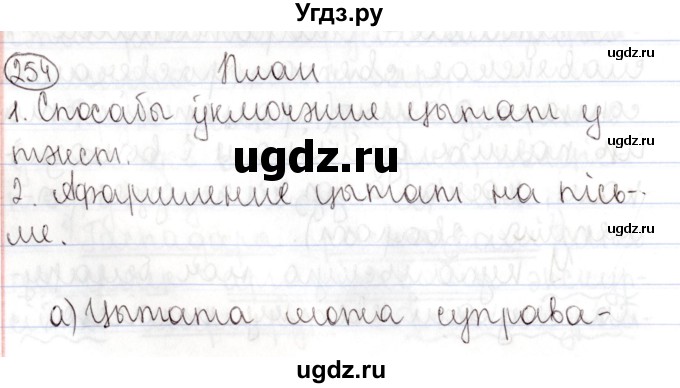 Угдз.ру
ugdz.ru
ugdz.ru
254 План
1. Спосабы ўключэння цытат у
тэкст.
ugdz.ru
ugdz.ru
2. Афармленне цытат на пісь-
ме.
ugdz.ru
а) Цытата можа суправа-
ugdz.ru
ugdz.ru